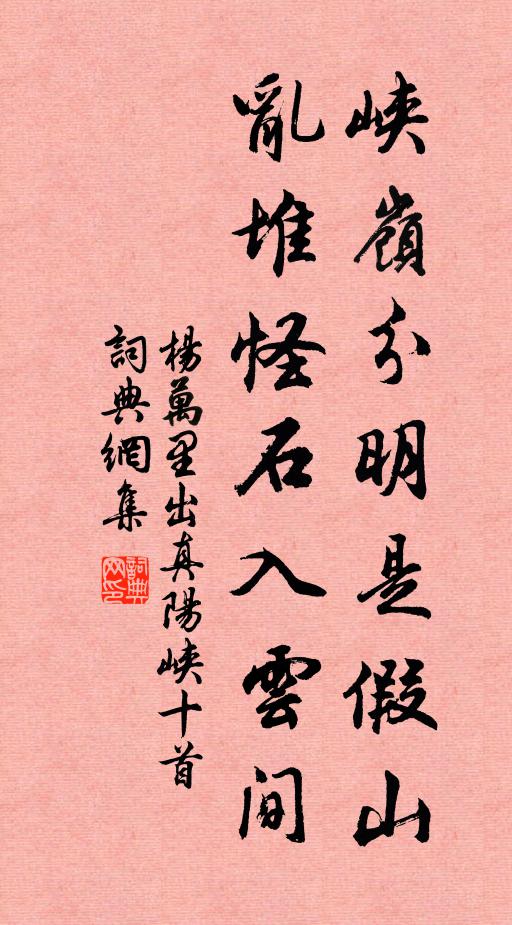 峽嶺分明是假山
亂堆怪石入雲間
楊萬里出真陽峽十首
詞典網集
詞典网印